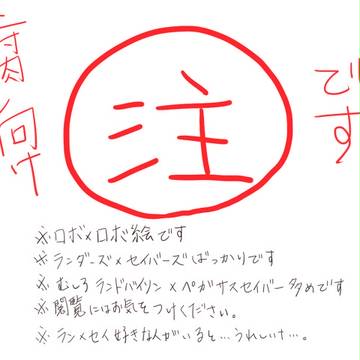 腐向け
注
です
※ロボ×ロボ絵です
※ランダーズ×セイバーズばっかりです
※むしろランドバイソン×ペガサスセイバー多めです
※閲覧にはお気をつけください。
※ラン×セイ好きな人がいると…うれしいナ…。